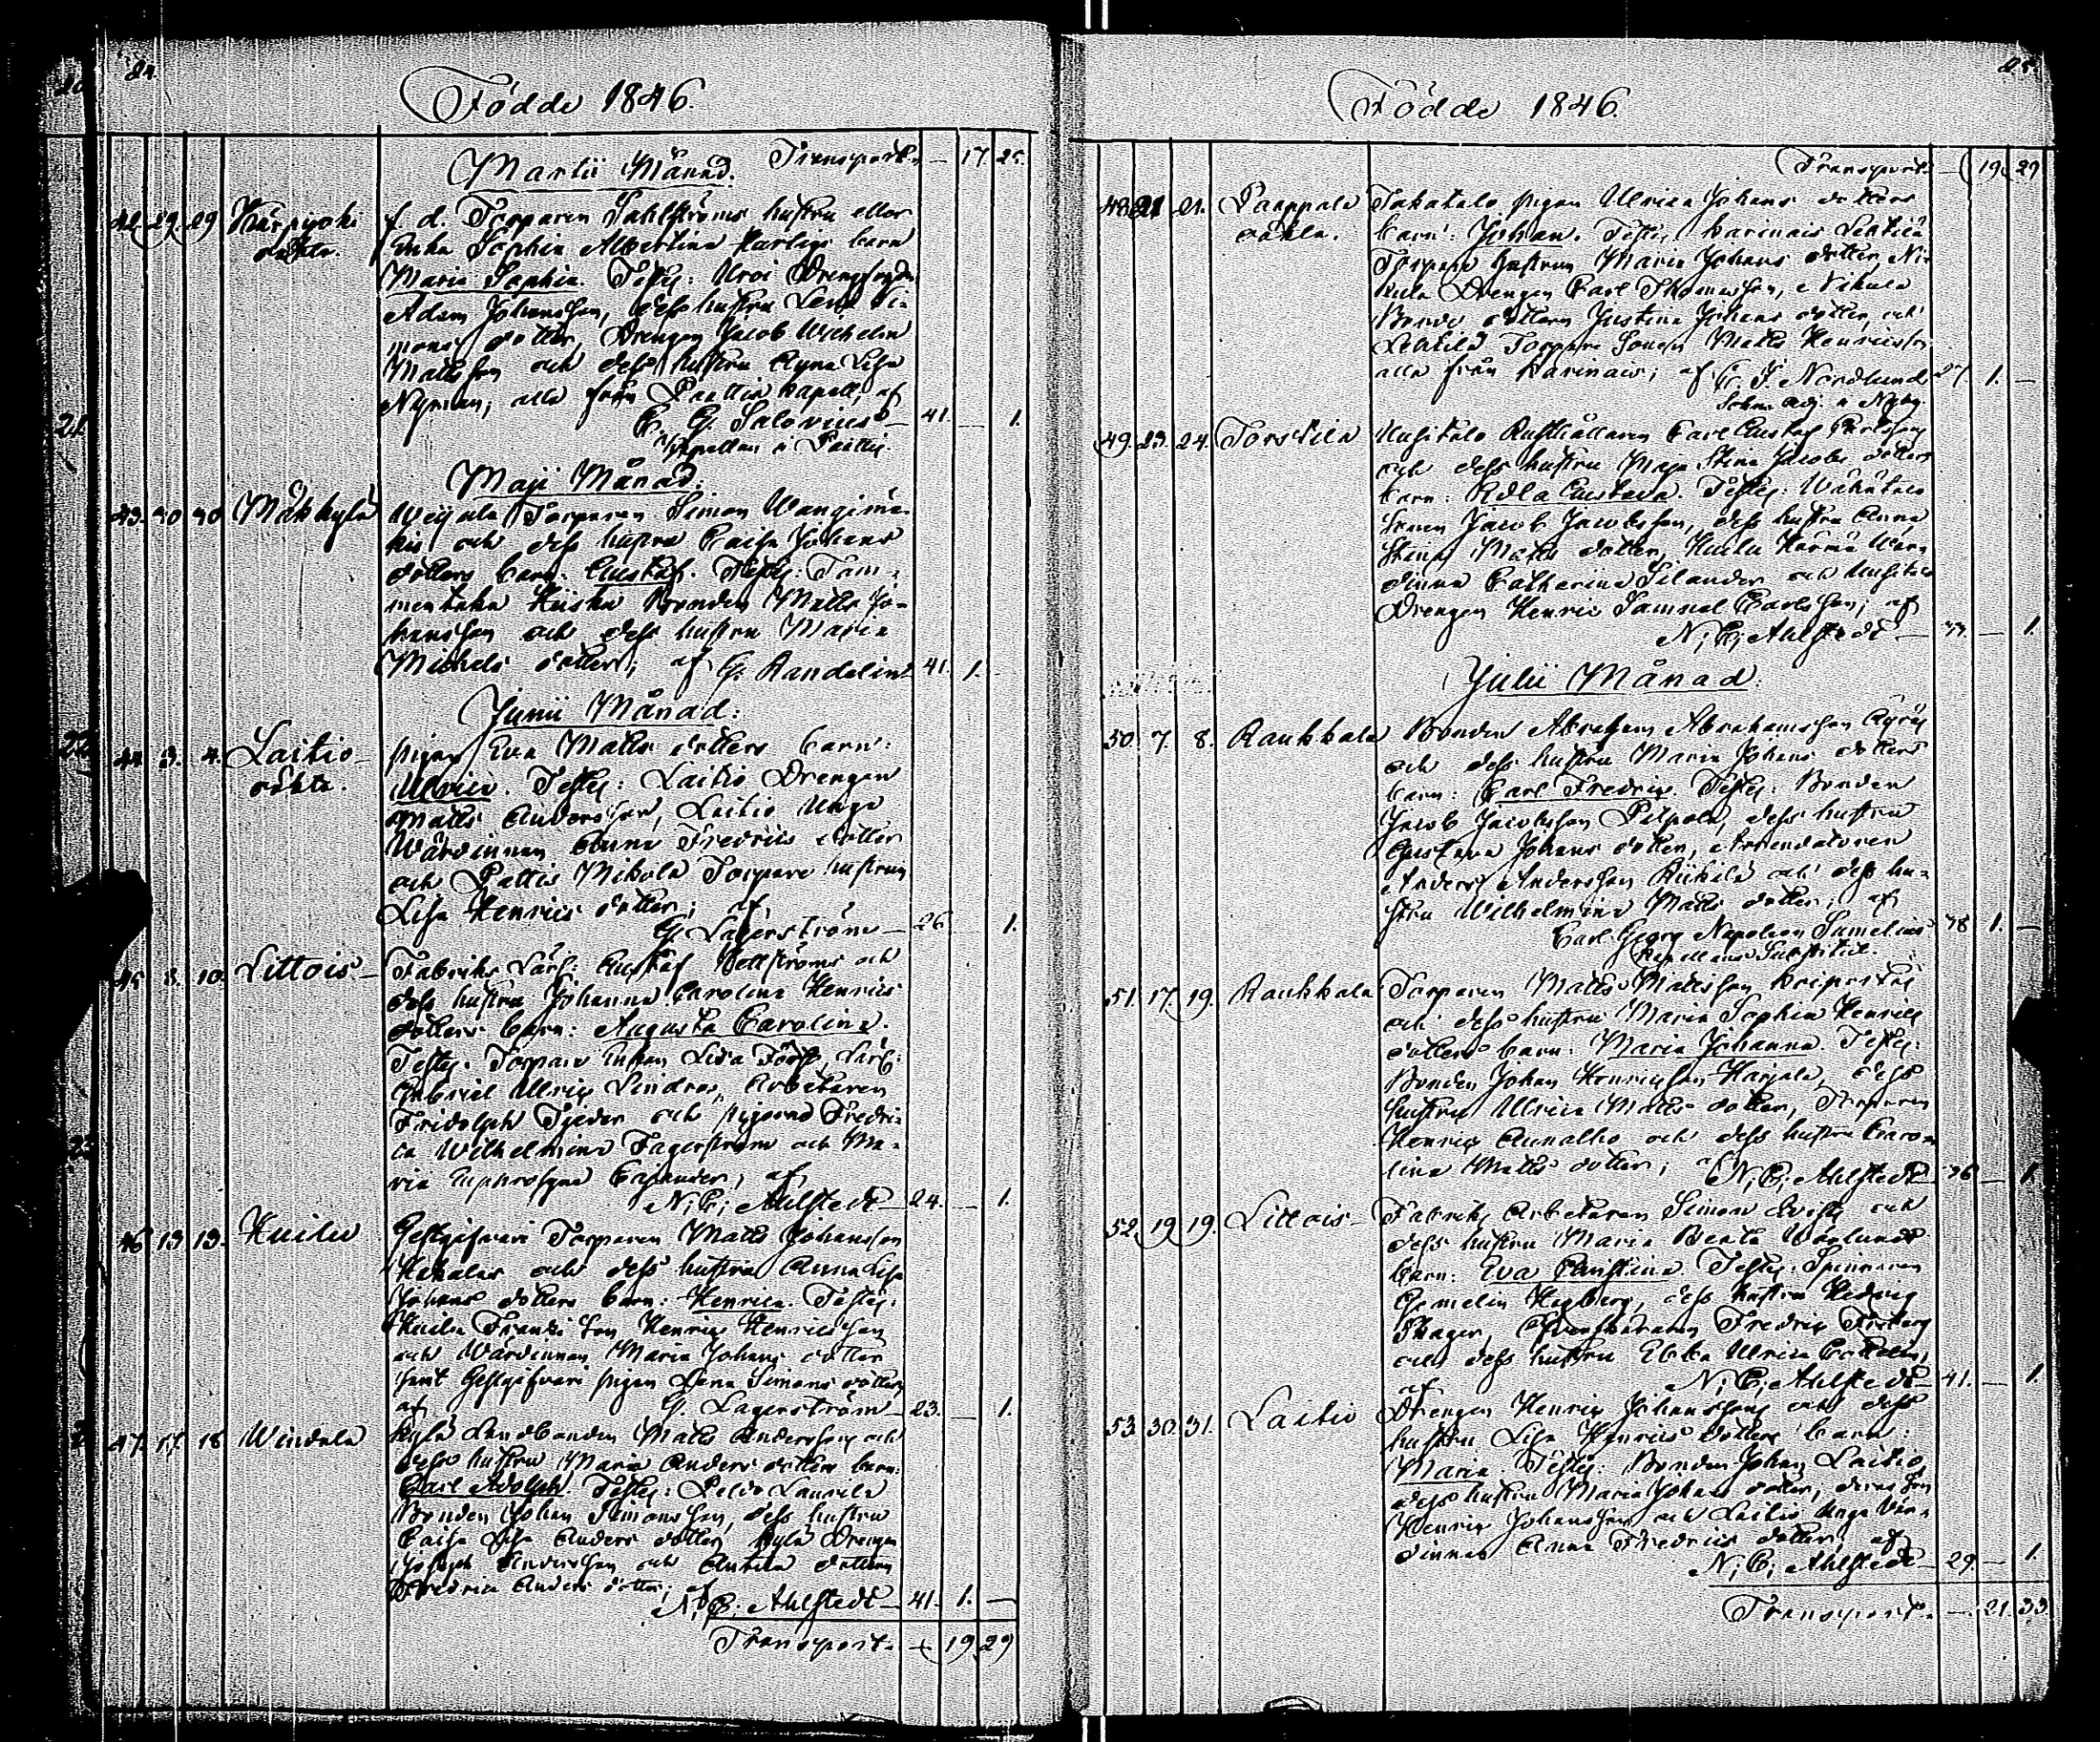 84.
Födde 1846.
Martii Månad. Transport — 17. 25.
42. 29. 29 Kärpijoki f. d. Torparen Sahlströms hustru eller
råhla. Enka Sophia Albertina barn
Maria Sophia. Testes:
Adam Johansson, dess hustru Lena Si-
mons dotter, Drengen Jacob Wilhelm
Mattsson och dess hustru Lisa
Nyman, alla från Paattis Kapell; af
C. G. Salovius — 41. — 1.
Kapellan i Paattis.
Maji Månad.
43. 30 30 Mäkkylä Torparen Simon
och dess hustru Caisa Johans
dotters barn: Gustaf. Testes: Tam-
Bonden Matts Jo-
hansson och dess hustru Maria
Michels dotter; af G. Randelin 41. 1. —
Junii Månad:
44. 3. 4. Laitio- pigan Eva Matts dotters barn:
råhla. Ulrica. Testes: Laitio Drengen
Matts Andersson, Laitio Unga
Wärdinnan Anna Fredrics dotter
och Pattis Mikola Torpare hustrun
Lisa Henrics dotter; af
G. Lagerström — 26. 1.
45. 8. 10. Littois — Fabriks Lärl: Gustaf Hellströms och
dess hustru Johanna Carolina Henrics
dotters barn: Augusta Carolina.
Testes. Torpare Enkan Lisa Lärl:
Gabriel Ulric Lindros, Arbetaren
Fridolph Tjeder och pigorna Fredri-
ca Wilhelmina Fagerström och Ma-
ria Euphrosyne Cajander; af
N. C. Ahlstedt — 24. — 1.
46 13 13. Huilu Gestgifveri Torparen Matts Johansson
och dess hustru Anna Lisa
Johans dotters barn: Henrica. Testes:
Huilu Son Henric Henricsson
och Wärdinnan Maria Johans dotter
samt Gestgifveri pigan Lena Simons dotter;
af G. Lagerström — 23. — 1.
47. 17. 18 Windala Kylä Landbonden Matts Andersson och
dess hustru Maria Anders dotters barn:
Carl Adolph. Testes: Laurila
Bonden Johan Simonsson, dess hustru
Caisa Lisa Anders dotter, Kylä Drengen
Joseph Andersson och Anttila dottern
Fredrica Anders dotter; af
N. C. Ahlstedt — 41. 1. —
Transport. — 19 29
85.
Födde 1846.
Transport — 19. 29
48. 21 21. Paappala Takatalo pigan Ulrica Johans dotters
råhla. barn: Johan. Testes. Karinais Lehtilä
Torpare hustrun Maria Johans dotter, Ni-
kula Drengen Carl Thomasson, Nikula
Bonde dottern Justina Johans dotter, och
Lehtilä Torpare Sonen Matts Henricsson
alla från Karinais; af C. J. Nordlund 27. 1. —
49. 23. 24. Torstila Uusitalo Rusthållaren Carl Gustaf
och dess hustru Maja Stina Jacobs dotters
barn: Adla Gustava. Testes: Wähätalo
Sonen Jacob Jacobsson, dess hustru Anna
Stina Matts dotter, Huilu Härmä Wär-
dinna Catharina Silander och Uusitalo
Drengen Henric Samuel Carlsson; af
N. C. Ahlstedt — 33. — 1.
Julii Månad.
50. 7. 8. Raukkala Bonden Abraham Abrahamsson
och dess hustru Maria Johans dotters
barn: Carl Fredric. Testes. Bonden
Jacob Jacobsson Pilpola, dess hustru
Gustava Johans dotter, Arrendatoren
Anders Andersson och dess hu-
stru Wilhelmina Matts dotter; af
Carl Georg Napoleon Sumelius 38 1. —
Kapellans Substitut.
51. 17. 19. Raukkala Torparen Matts Mattsson
och dess hustru Maria Sophia Henrics
dotters barn: Maria Johanna. Testes:
Bonden Johan Henricsson Harjala, dess
hustru Ulrica Matts dotter, Torparen
Henric och dess hustru Caro-
lina Matts dotter; af N. C. Ahlstedt 36 — 1.
52. 19 19. Littois — Fabriks Arbetaren Simon och
dess hustru Maria Beata
barn: Eva Christina Testes. Spinnaren
Hagberg, dess hustru Hedvig
Öfverskäraren Fredric
och dess hustru Ebba Ulrica
af N. C. Ahlstedt — 41. — 1.
53. 30. 31. Laitio Drengen Henric Johansson och dess
hustru Lisa Henrics dotters barn:
Maria Testes: Bonden Johan Laitio,
dess hustru Maria Johans dotter, deras Son
Henric Johansson och Laitio Unga Wär-
dinnan Anna Fredrics dotter; af
N. C. Ahlstedt — 29. — 1.
Transport. — 21. 33